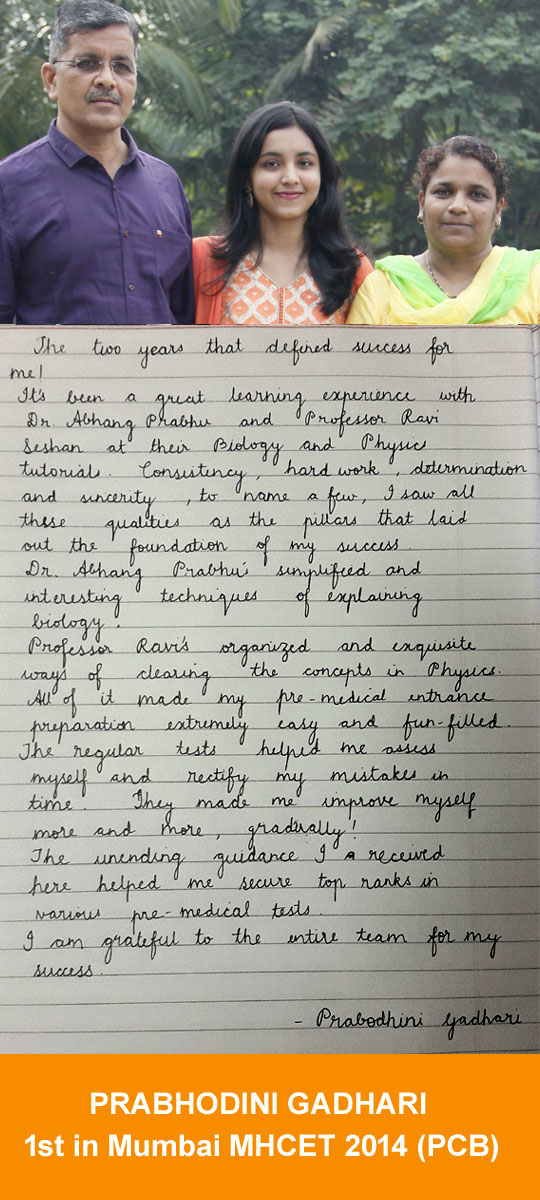 The two years that defined success for
me!
It's been a great learning experience with
Dr. Abhang Prabhu and Professor Ravi
Seshan at their Biology and Physics
tutorial. Consistency, hard work, determination
and sincerity, to name a few, I saw all
these qualities as the pillars that laid
out the foundation of my success.
Dr. Abhang Prabhu's simplified and
interesting techniques of explaining
biology.
Professor Ravi's organized and exquisite
ways of clearing the concepts in Physics.
All of it made my pre-medical entrance
preparation extremely easy and fun-filled.
The regular tests helped me assess
myself and rectify my mistakes in
time. They made me improve myself
more and more, gradually!
The unending guidance I received
here helped me secure top ranks in
various pre-medical tests.
I am grateful to the entire team for my
success.
- Prabodhini Gadhari
PRABHODINI GADHARI
1st in Mumbai MHCET 2014 (PCB)